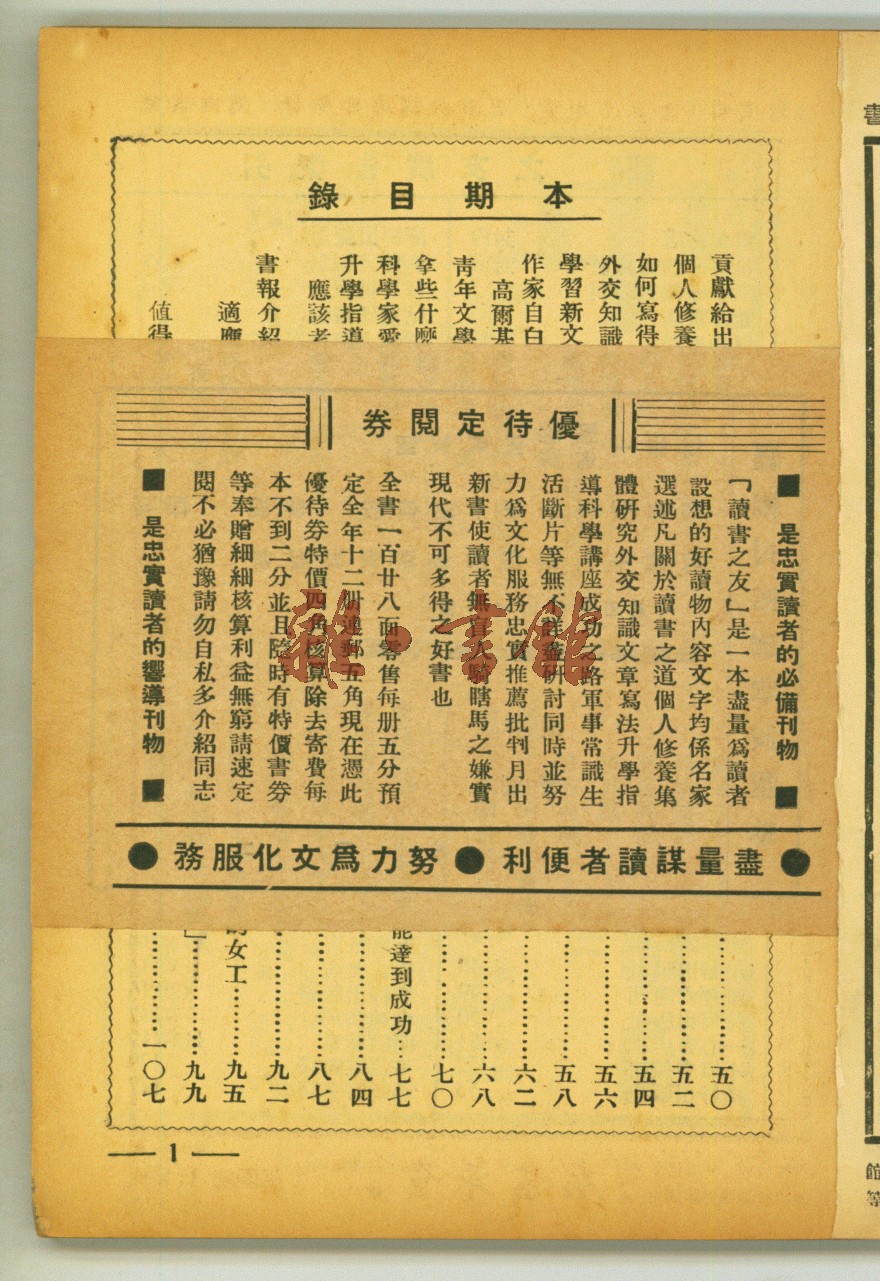 本期目錄
貢獻給出
個人修養
如何寫得
外交知識
學習新文
作家自白
高爾基
青年文學
拿些什麼
科學家愛
升學指導
應該者
書報介紹
適應
值得
優待定閱券
■ 是忠實讀者的必備刊物 ■
「讀書之友」是一本盡量爲讀者
設想的好讀物內容文字均係名家
選述凡關於讀書之道個人修養集
體研究外交知識文章寫法升學指
導科學講座成功之路軍事常識生
活斷片等無不詳盡研討同時並努
力爲文化服務忠實推薦批判月出
新書使讀者無盲人騎瞎馬之嫌實
現代不可多得之好書也
全書一百廿八面零售每册五分預
定全年十二册連郵五角現在憑此
優待券特價四角核算除去寄費每
本不到二分並且隨時有特價書券
等奉贈細細核算利益無窮請速定
閱不必猶豫請勿自私多介紹同志
■ 是忠實讀者的嚮導刊物 ■
●盡量謀讀者便利●努力爲文化服務●
五〇
五二
五四
五六
五八
六二
六八
七〇
能達到成功…七七
八四
八七
九二
女工…………九五
」……………九九
一〇七
— 1 —
書
館
等